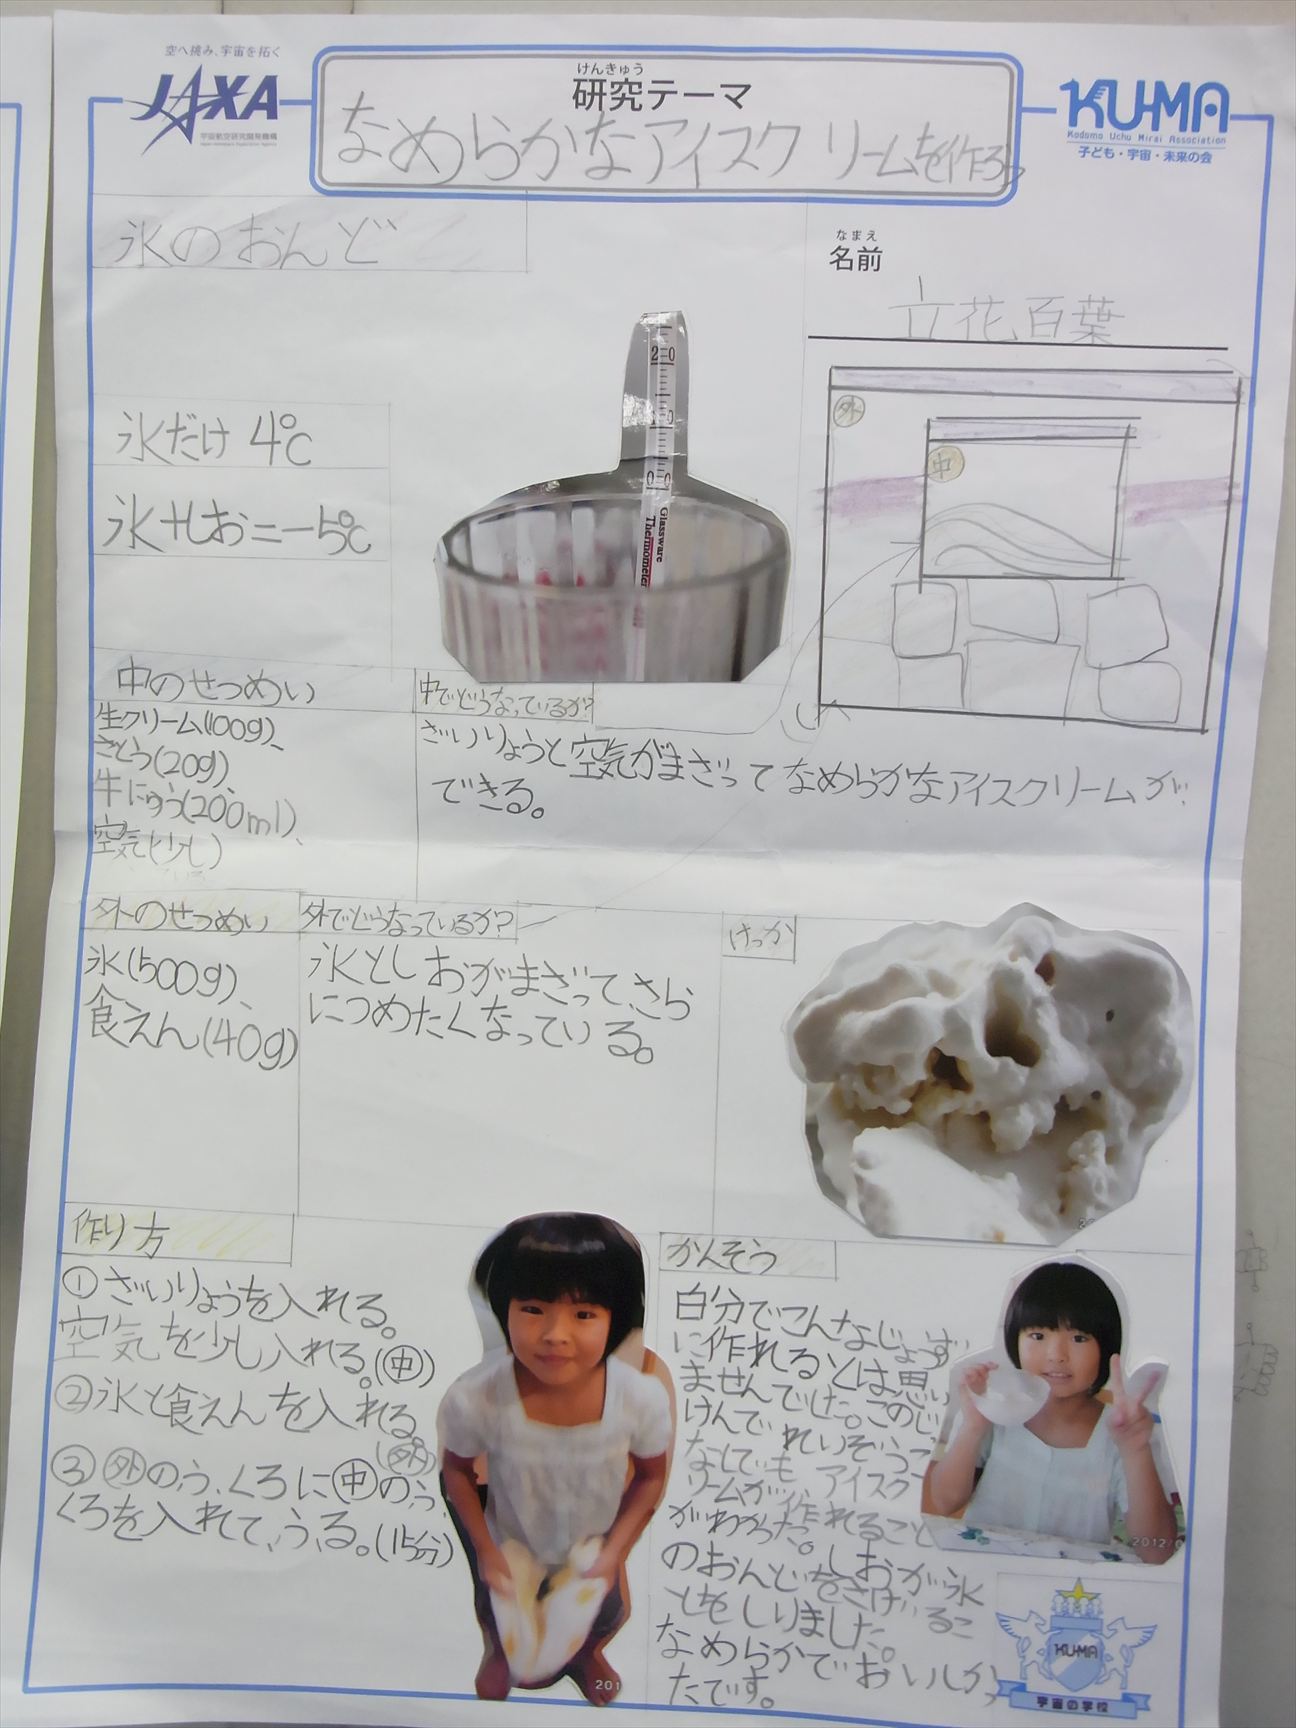 空へ挑み、宇宙を拓く
JAXA
宇宙航空研究開発機構
Japan Aerospace Exploration Agency
けんきゅう
研究テーマ
なめらかなアイスクリームを作ろう
KU-MA
Kodomo Uchu Mirai Association
子ども・宇宙・未来の会
氷のおんど
なまえ
名前
立花百葉
氷だけ 4℃
氷+しお=-5℃
20
10
0
Glassware
Thermometer
外
中
中のせつめい
生クリーム(100g)、
さとう(20g)、
牛にゅう(200ml)、
空気(少し)
中でどうなっているか?
ざいりょうと空気がまざってなめらかなアイスクリームが
できる。
外のせつめい
氷(500g)、
食えん(40g)
外でどうなっているか?
氷としおがまざって、さら
につめたくなっている。
けっか
作り方
①ざいりょうを入れる。
空気を少し入れる。(中)
②氷と食えんを入れる
(外)
③外のふくろに中のふ
くろを入れて、ふる。(15分)
かんそう
自分でこんなじょうず
に作れるとは思い
ませんでした。このじっ
けんで、れいぞうこ
なしでも、アイスク
リームが作れること
がわかった。しおが氷
のおんどをさげるこ
とをしりました。
なめらかでおいしかっ
たです。
201
2012/
KU-MA
宇宙の学校